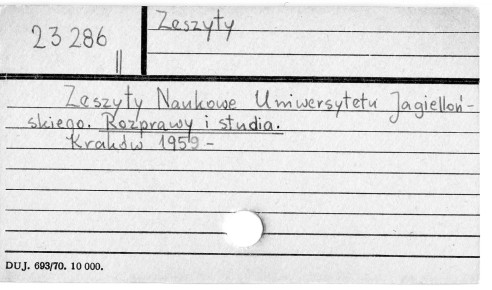 23 286
II
Zeszyty
Zeszyty Naukowe Uniwersytetu Jagielloń-
skiego. Rozprawy i studia.
Kraków 1959 -
DUJ. 693/70. 10 000.